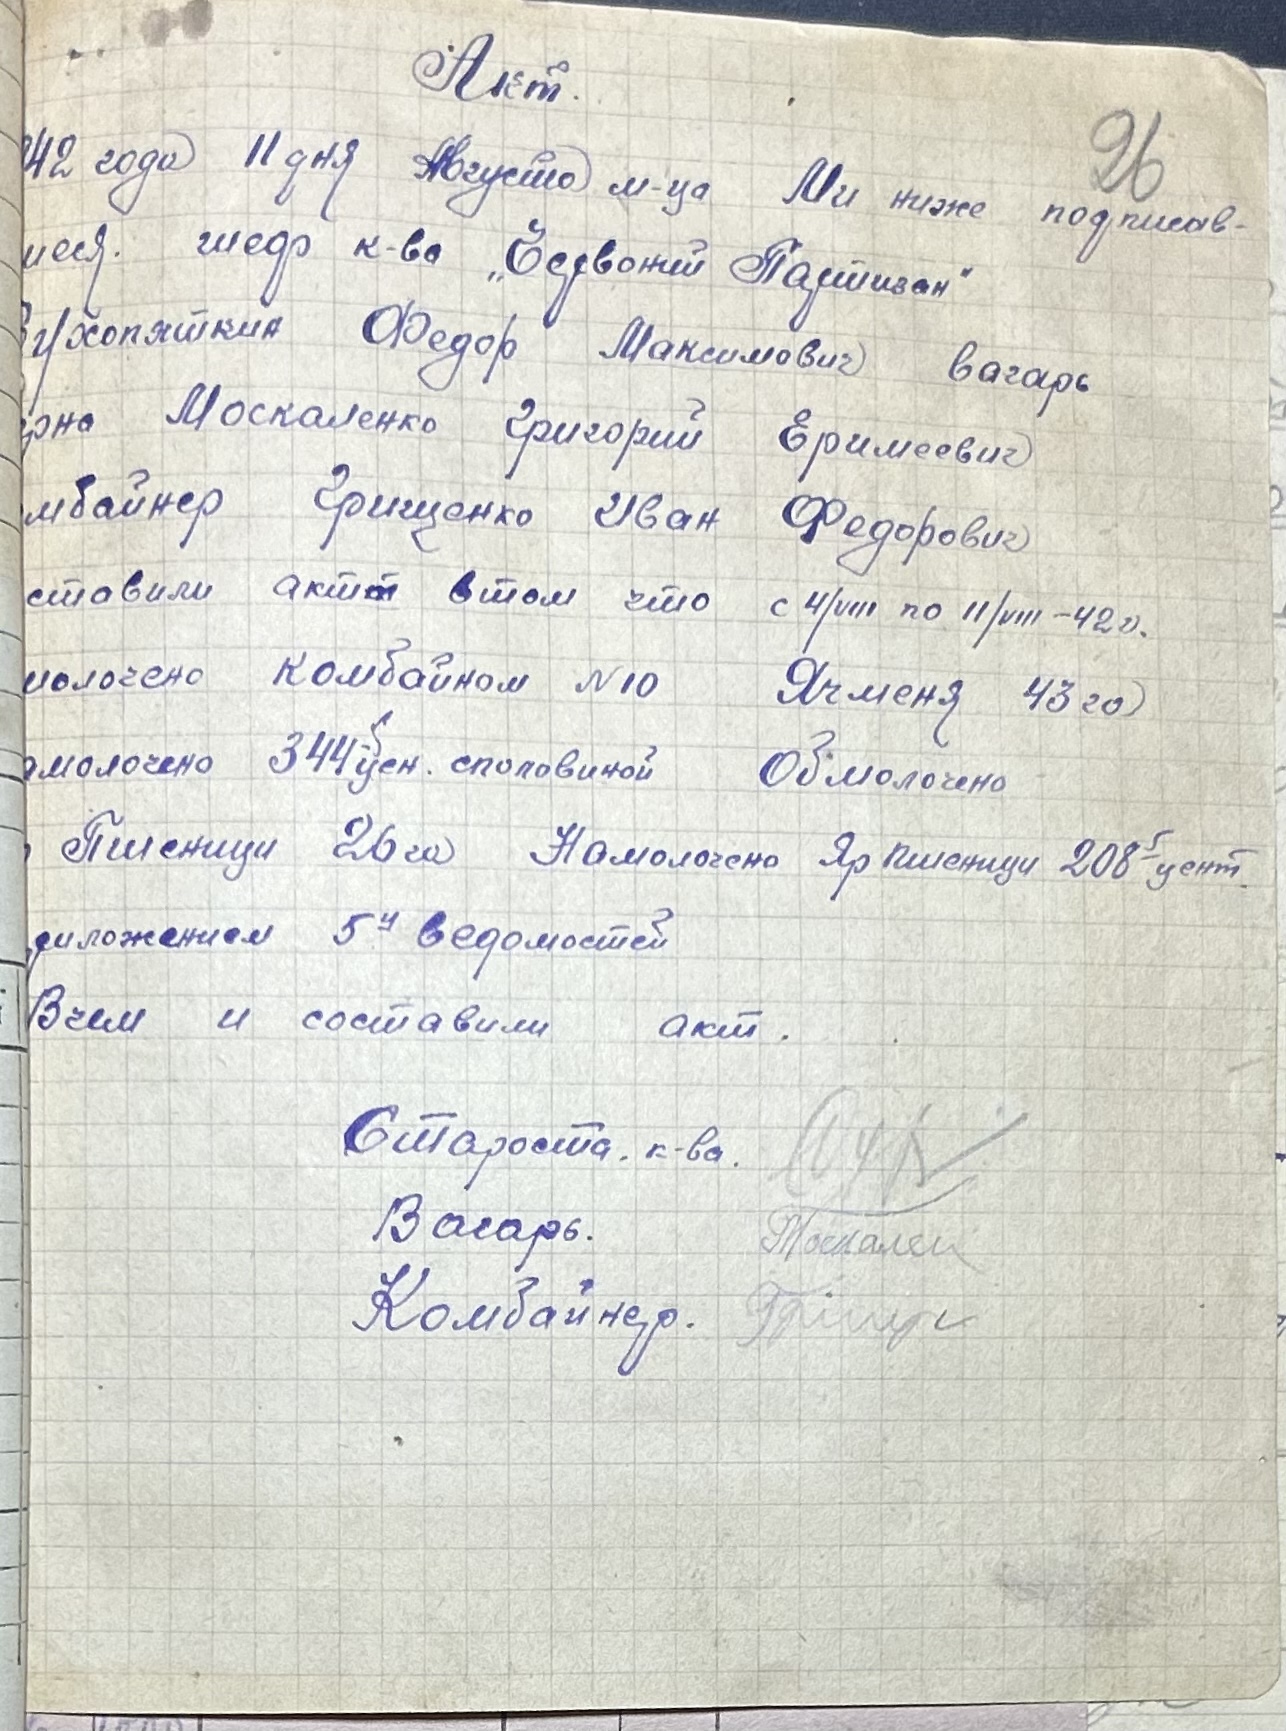 Акт.
26
942 года 11 дня Августа м-ца Ми ниже подписав-
шеся. шеф к-ва „Червоний Партизан"
Сухопяткин Федор Максимович вагарь
зерна Москаленко Григорий Еримеевич
омбайнер Грищенко Иван Федорович
ставили актт втом что с 4/VIII по 11/VIII-42 г.
молочено комбайном №10 Ячменя 43 га
амолочено 344-5 цен. споповиной Обмолочено
Пшеници 26 га Намолочено Яр Пшеници 208-5 цент
риложением 5и ведомостей
Вчем и составили акт.
Староста. к-ва.
Вагарь. Москален
Комбайнер. Грищ